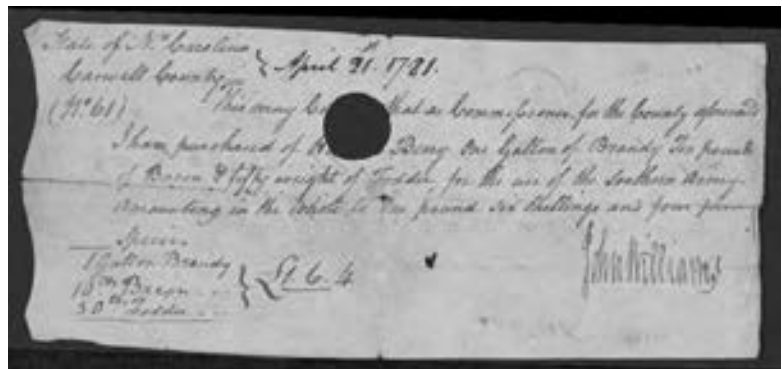 State of No Carolina
Caswell County } April 21st 1781.
(No 61) This may Ce that as Commissioner for the County aforesaid
I have purchased of H Berry One Gallon of Brandy Ten pounds
of Bacon & fifty weight of Fodder, for the use of the Southern Army
Amounting in the whole to One pound Six Shillings and four pence
Specie
1 Gallon Brandy
10 lb Bacon } £1. 6. 4
50 lb Fodder
John Williams